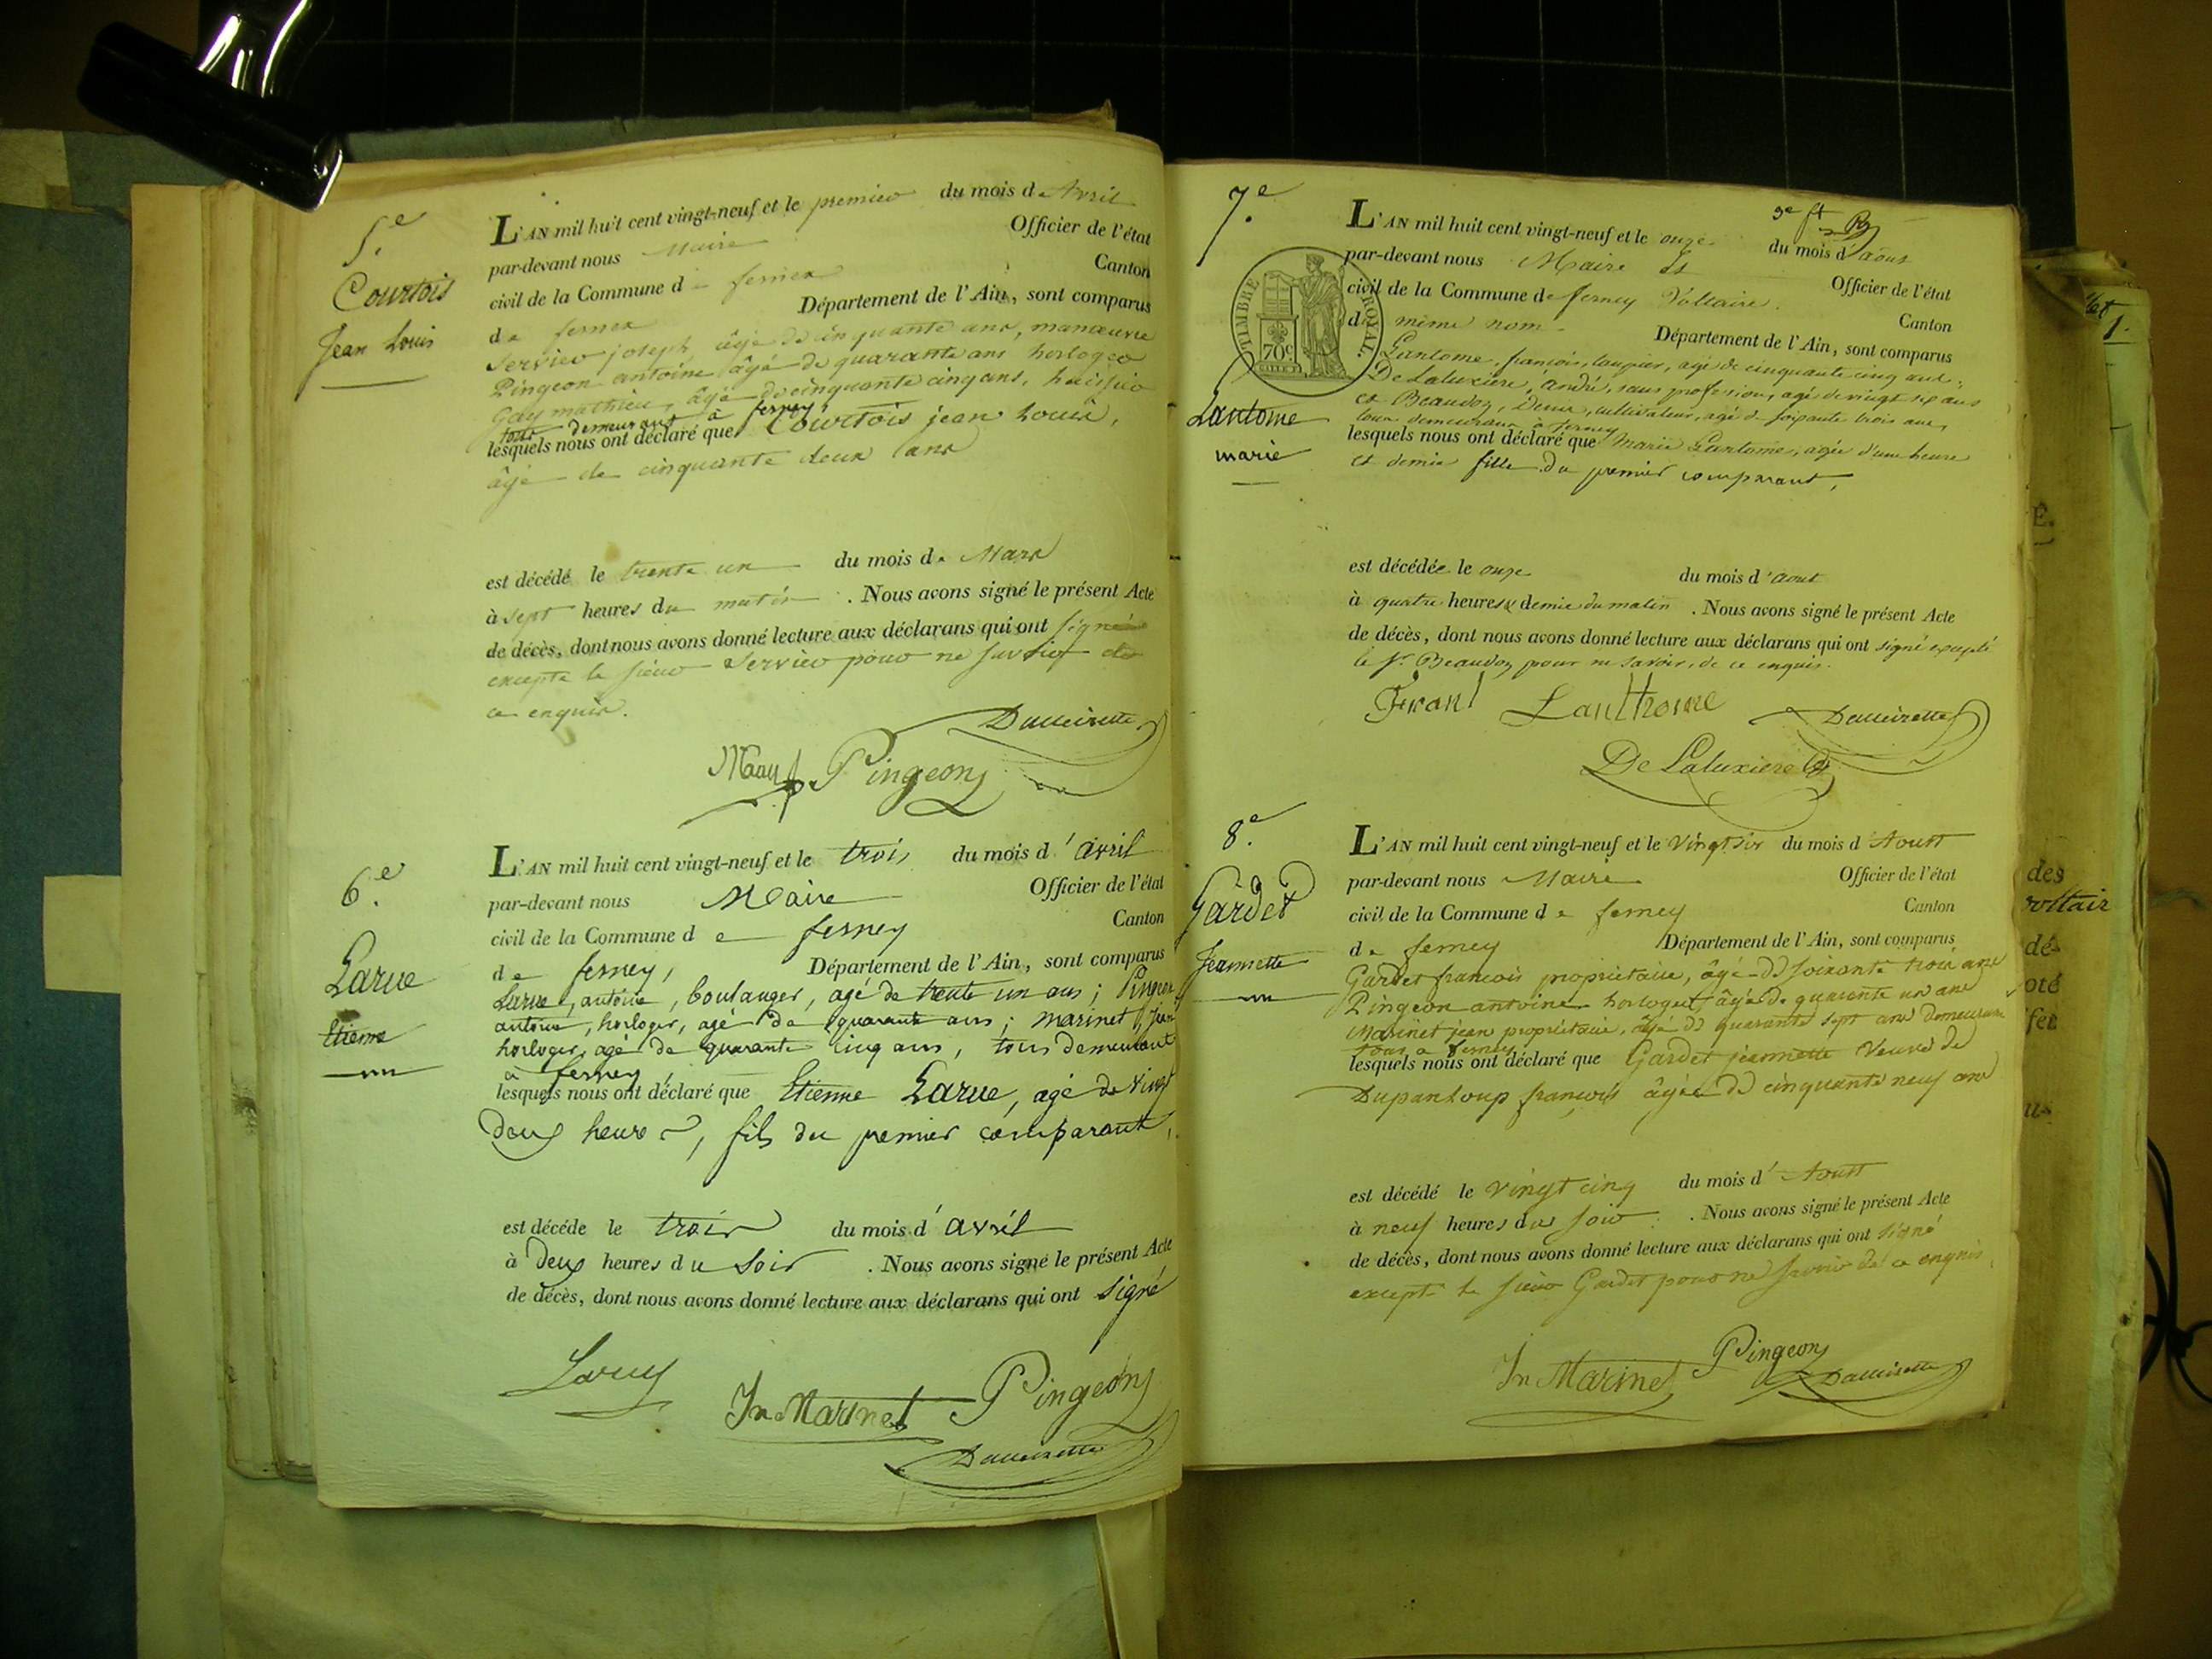 5.e
Courtois
Jean Louis
L'AN mil huit cent vingt-neuf et le premier du mois de Avril
par-devant nous Maire Officier de l'état
civil de la Commune de fernex Canton
de fernex Département de l'Ain, sont comparus
Servier joseph âgé de cinquante ans, manœuvre
Pingeon antoine âgé de quarante ans horloger
Gay mathieu, âgé de cinquante cinq ans, huissier
tous demeurant à ferney,
lesquels nous ont déclaré que Courtois jean Louis,
âgé de cinquante deux ans
est décédé le trente un du mois de Mars
à sept heures du matin . Nous avons signé le présent Acte
de décès, dont nous avons donné lecture aux déclarans qui ont signé
excepté le sieur Servier pour ne savoir de
ce enquis.
Pingeon
6.e
Larue
Etienne
L'AN mil huit cent vingt-neuf et le trois du mois d'avril
par-devant nous Maire Officier de l'état
civil de la Commune de ferney Canton
de ferney, Département de l'Ain, sont comparus
Larue, antoine, boulanger, agé de trente un ans; Pingeon
antoine, horloger, agé de quarante ans; marinet, jean
horloger, agé de quarante cinq ans, tous demeurant
a ferney
lesquels nous ont déclaré que Etienne Larue, agé de vingt
deux heures, fils du premier comparant,
est décédé le trois du mois d'avril
à deux heures du soir . Nous avons signé le présent Acte
de décès, dont nous avons donné lecture aux déclarans qui ont signé
Larue
Jn Marinet Pingeon
7.e
Lantome
marie
TIMBRE ROYAL.
70c
L'AN mil huit cent vingt-neuf et le onze du mois d'aout
par-devant nous Maire Officier de l'état
civil de la Commune de ferney Voltaire. Canton
du même nom Département de l'Ain, sont comparus
Lantome, françois, agé de cinquante cinq ans;
De Laluxière, André, sans profession, agé de vingt six ans
et Beaudoz, cultivateur, agé de soixante trois ans,
tous demeurans à ferney
lesquels nous ont déclaré que Marie Lantome, agée d'une heure
et demie fille du premier comparant,
est décédée le onze du mois d'aout
à quatre heures & demie du matin . Nous avons signé le présent Acte
de décès, dont nous avons donné lecture aux déclarans qui ont signé excepté
le Sr Beaudoz pour ne savoir, de ce enquis.
Lanthome
De Laluxiere
8.e
Gardet
Jeannette
L'AN mil huit cent vingt-neuf et le vingt six du mois d'Aoust
par-devant nous Maire Officier de l'état
civil de la Commune de ferney Canton
de ferney Département de l'Ain, sont comparus
Gardet francois propriétaire, âgé de soixante trois ans
Pingeon antoine horloger, âgé de quarante un ans
Marinet jean propriétaire, âgé de quarante sept ans demeurant
tous a ferney
lesquels nous ont déclaré que Gardet jeannette Veuve de
Dupanloup francois âgée de cinquante neuf ans
est décédé le vingt cinq du mois d'Aoust
à neuf heures du soir . Nous avons signé le présent Acte
de décès, dont nous avons donné lecture aux déclarans qui ont signé
excepté le sieur Gardet pour ne savoir de ce enquis
Jn Marinet Pingeon